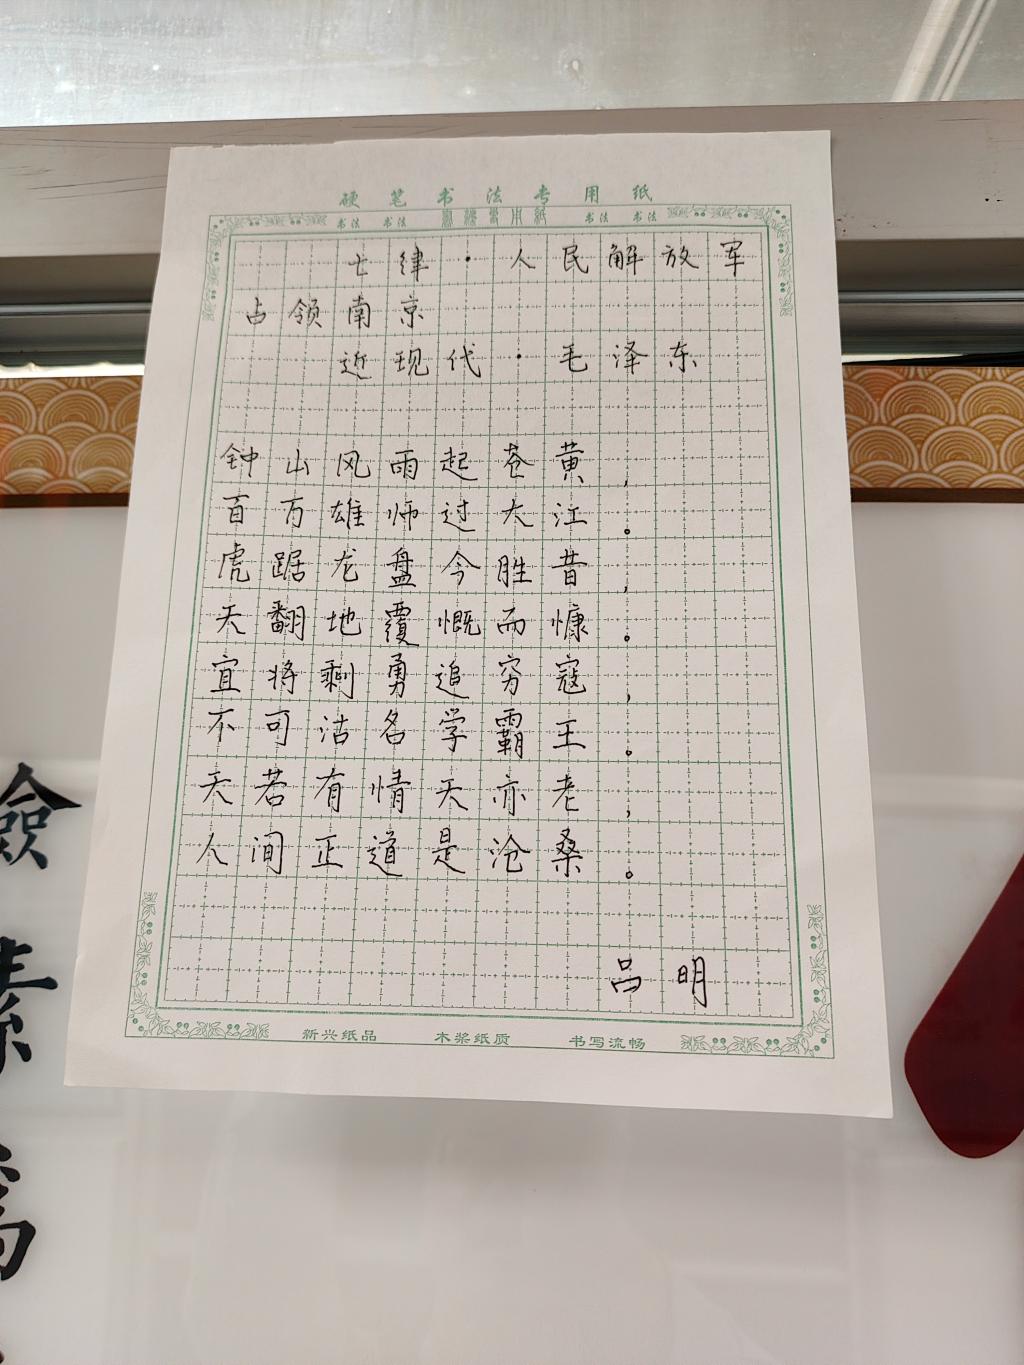 硬笔书法专用纸
书法 书法 书法 书法
七律·人民解放军
占领南京
近现代·毛泽东
钟山风雨起苍黄，
百万雄师过大江。
虎踞龙盘今胜昔，
天翻地覆慨而慷。
宜将剩勇追穷寇，
不可沽名学霸王。
天若有情天亦老，
人间正道是沧桑。
吕明
新兴纸品 木浆纸质 书写流畅
素